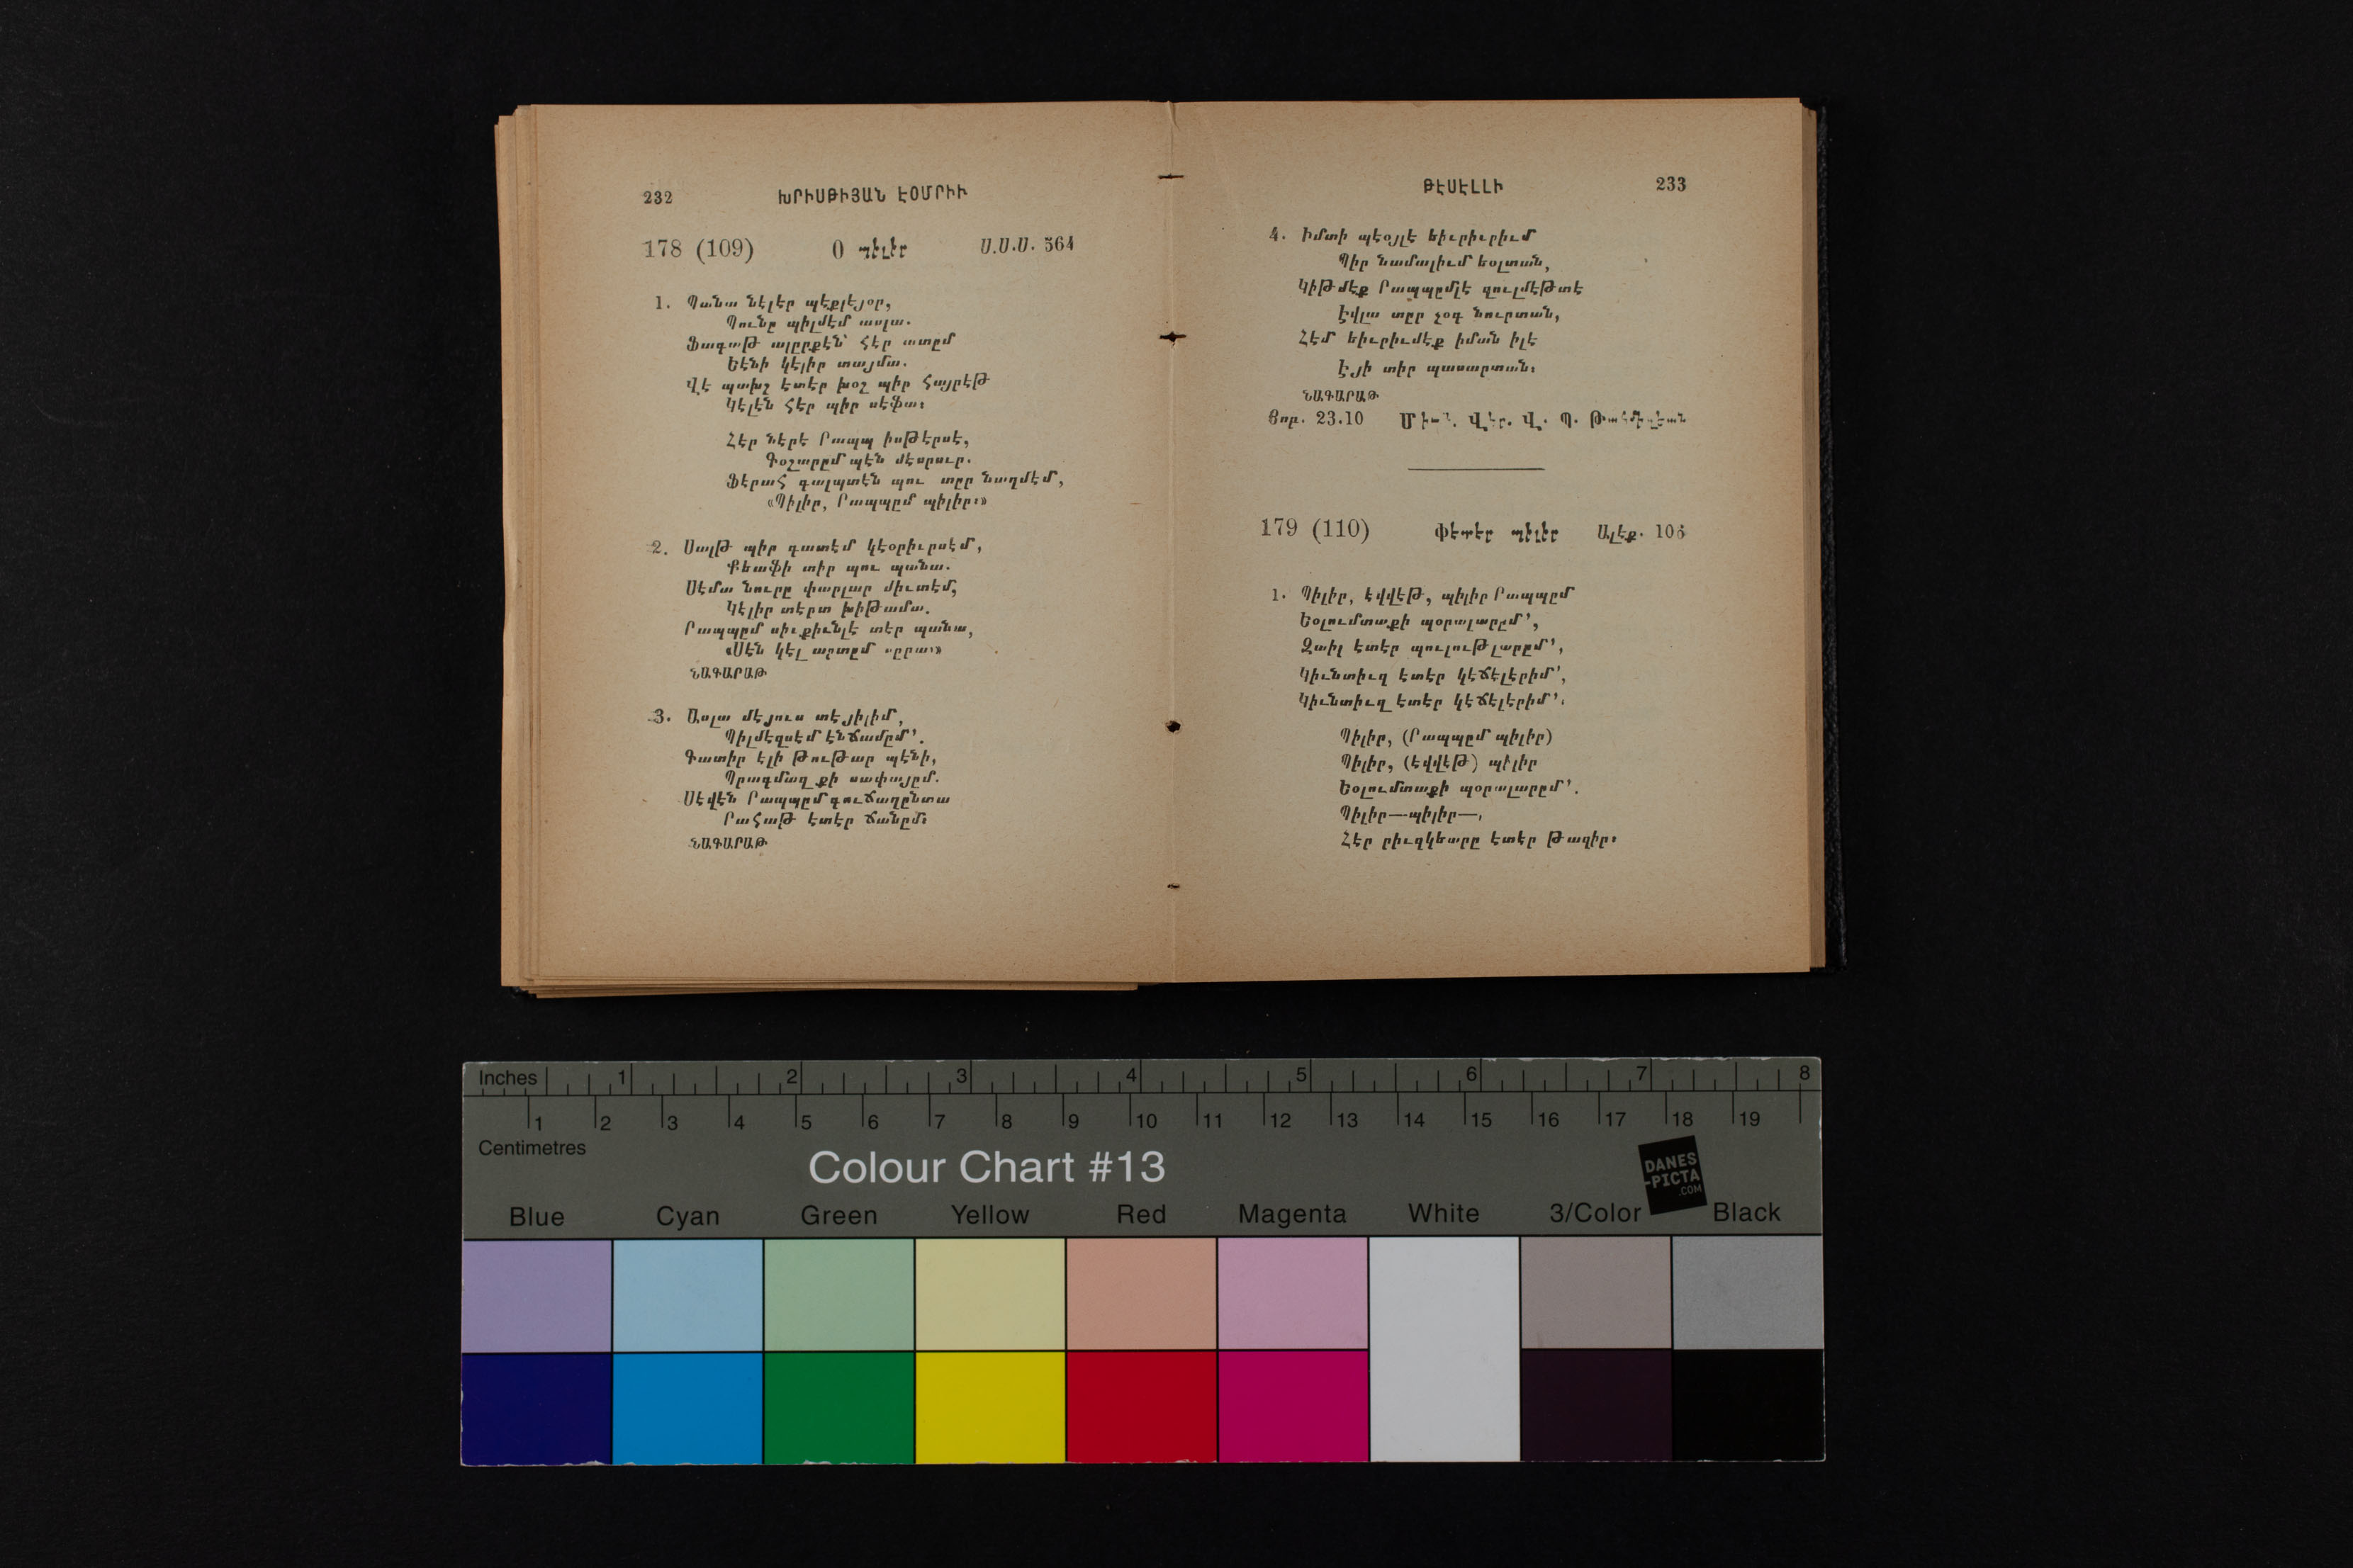 232 ԽՐԻՍԹԻՅԱՆ ԷՕՄՐԻԻ
178 (109) Օ պիլիր Ս.Ս.Ս. 564
1. Պանա նէլէր պէքլէյօր,
Պունը պիլմէմ ասլա.
Ֆագաթ ալըրքէն՝ հէր ատըմ
Եէնի կէլիր տայմա.
Վէ պախշ էտէր խօշ պիր հայրէթ
Կէլէն հէր պիր սէֆա։
Հէր նէրէ Րապպ իսթէրսէ,
Գօշարըմ պէն մէսրուր.
Ֆէրահ գալպտէն պու տըր նաղմէմ,
«Պիլիր, Րապպըմ պիլիր։»
2. Սալթ պիր գատէմ կէօրիւրսէմ,
Քեաֆի տիր պու պանա.
Սէմա նուրը փարլար միւտէմ,
Կէլիր տէրտ խիթամա.
Րապպըմ սիւքիւնլէ տէր պանա,
«Սէն կէլ արտըմ սըրա։»
ՆԱԳԱՐԱԹ
3. Ասլա մէյուս տէյիլիմ,
Պիլմէզսէմ էնճամըմ՚.
Գատիր էլի թութար պէնի,
Պրագմաղ քի սափայըմ.
Սէվէն Րապպըմ գուճաղընտա
Րահաթ էտէր ճանըմ։
ՆԱԳԱՐԱԹ
ԹԷՍԷԼԼԻ 233
4. Իմտի պէօյլէ եիւրիւրիւմ
Պիր նամալիւմ եօլտան,
Կիթմէք Րապպըմլէ զուլմէթտէ
Էվլա տըր չօգ նուրտան,
Հէմ եիւրիւմէք իման իլէ
Էյի տիր պասարտան։
ՆԱԳԱՐԱԹ
Յոբ. 23.10 Վ. Պ.
179 (110) Փէտէր պիլիր Ալէք. 106
1. Պիլիր, էվվէթ, պիլիր Րապպըմ
Եօլումտաքի պօրալարըմ՚,
Զաիլ էտէր պուլութլարըմ՚,
Կիւնտիւզ էտէր կէճէլէրիմ՚,
Կիւնտիւզ էտէր կէճէլէրիմ՚.
Պիլիր, (Րապպըմ պիլիր)
Պիլիր, (էվվէթ) պիլիր
Եօլումտաքի պօրալարըմ՚.
Պիլիր—պիլիր—,
Հէր րիւզկեարը էտէր թազիր։
Inches 1 2 3 4 5 6 7 8
1 2 3 4 5 6 7 8 9 10 11 12 13 14 15 16 17 18 19
Centimetres
Colour Chart #13
DANES
-PICTA
.COM
Blue Cyan Green Yellow Red Magenta White 3/Color Black